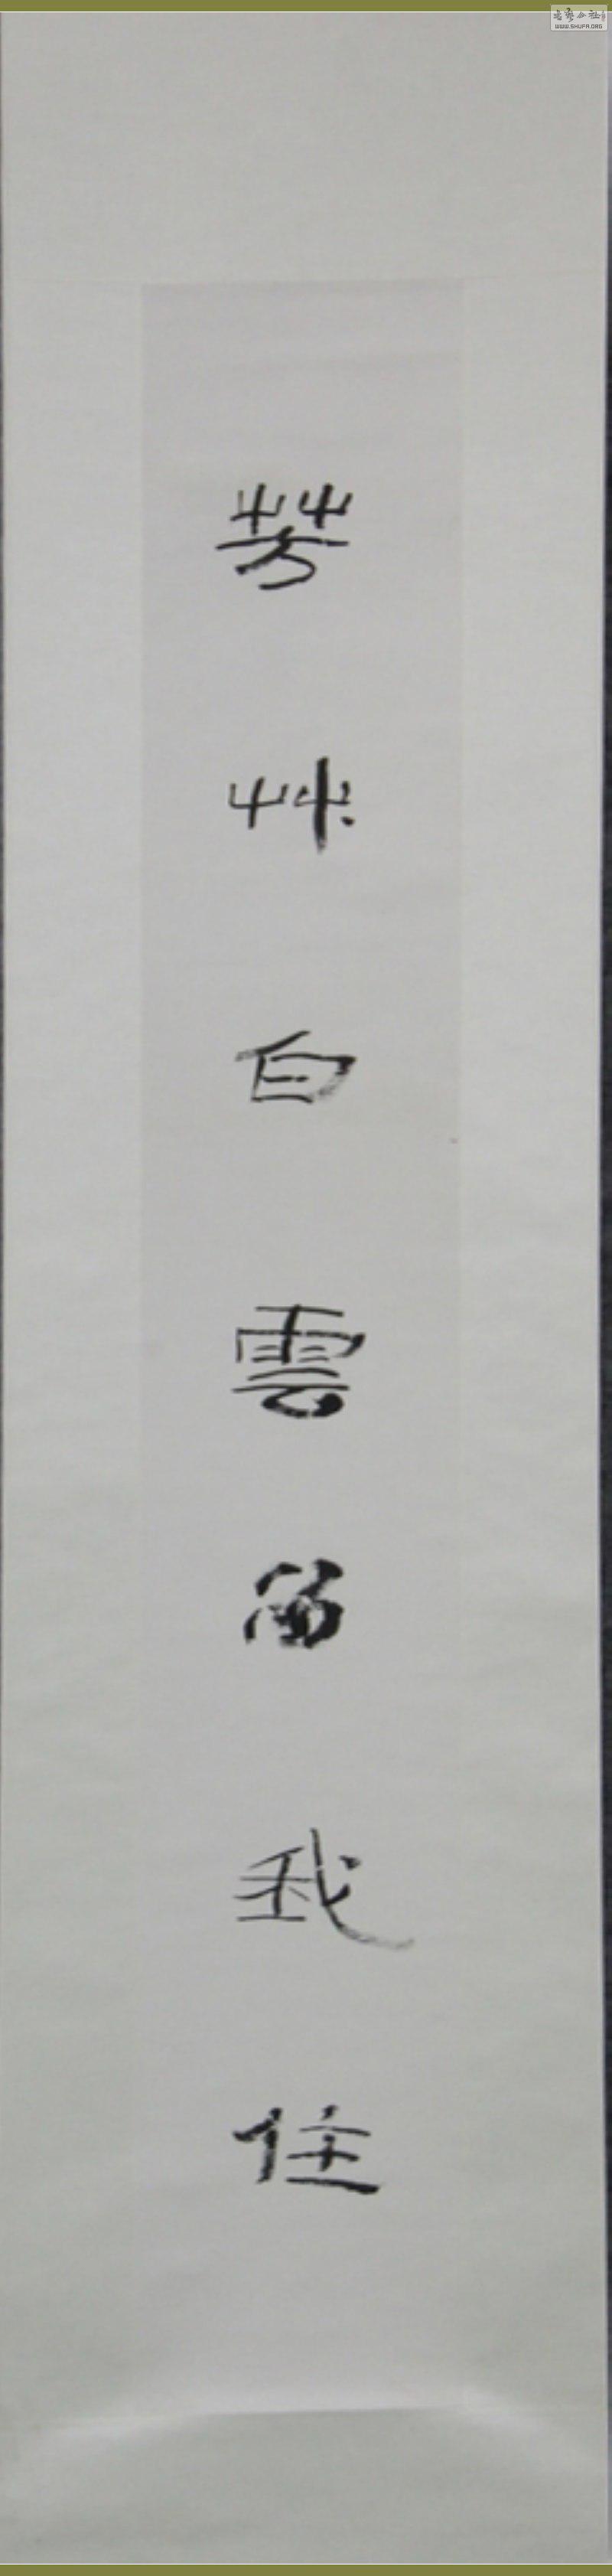 芳艸白雲留我住
WWW.SHUFA.ORG